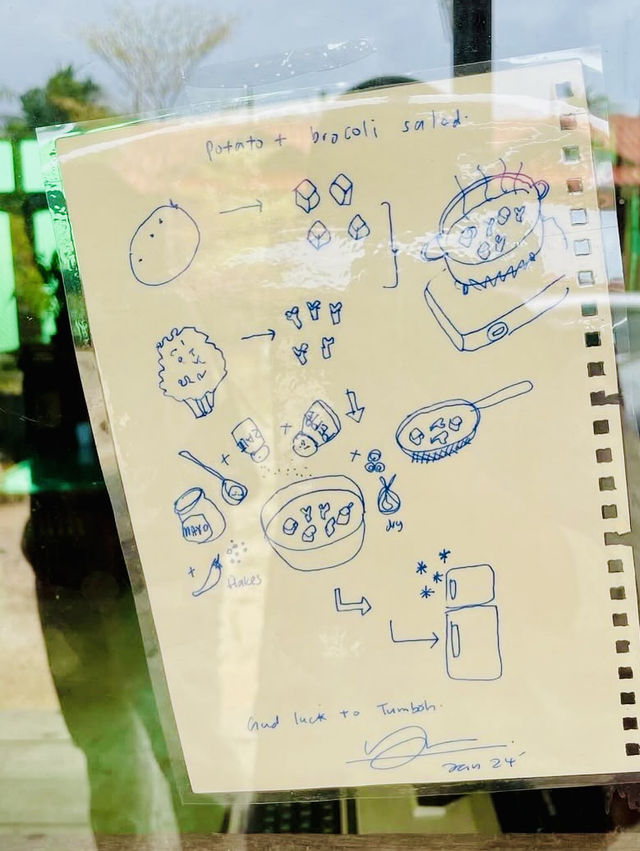 potato + brocoli salad.
+
+
+
MAYO
dry
+
flakes
Gud luck to Tumboh.
Jan 24'